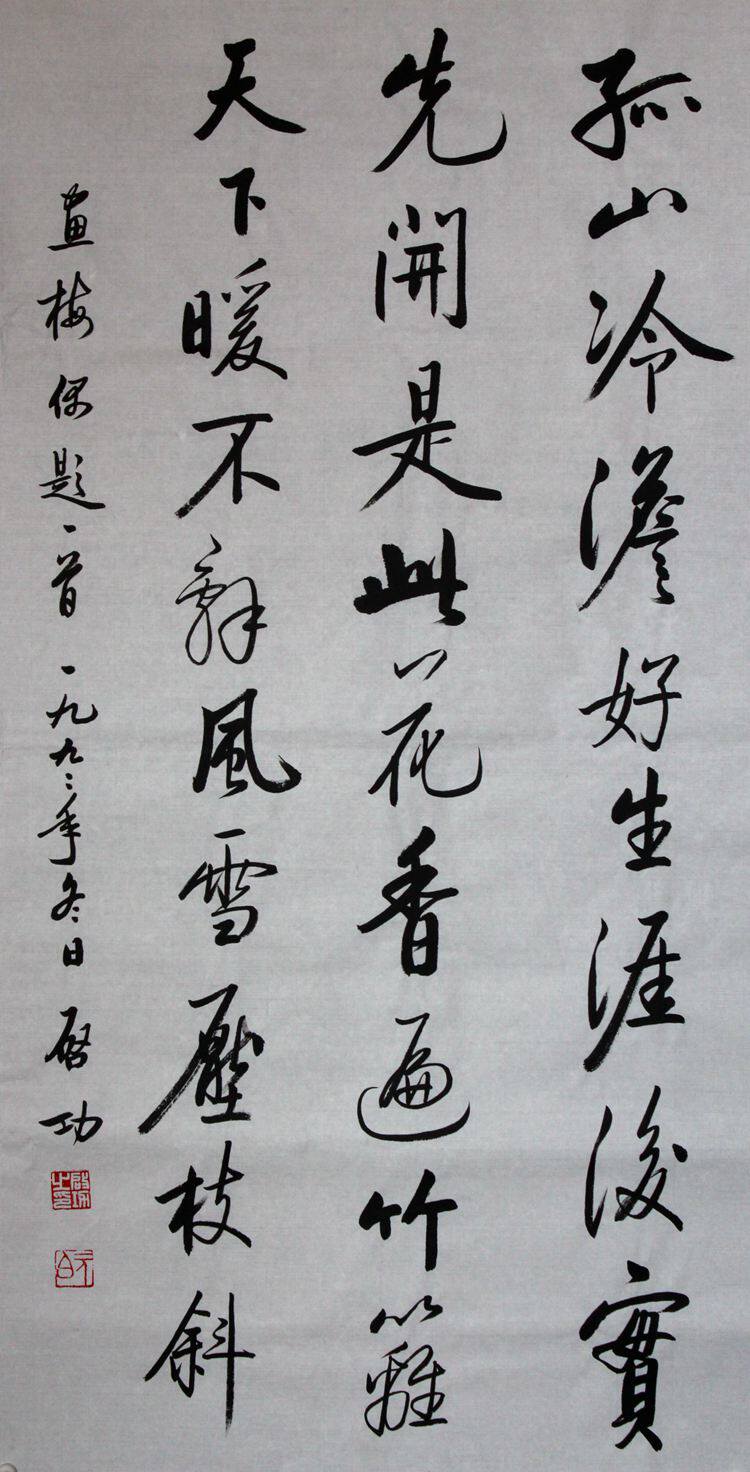 孤山冷澹好生涯後實
先開是此花香遍竹籬
天下暖不辭風雪壓枝斜
畫梅偶題一首一九九二年冬日啓功
啟功之印
元白